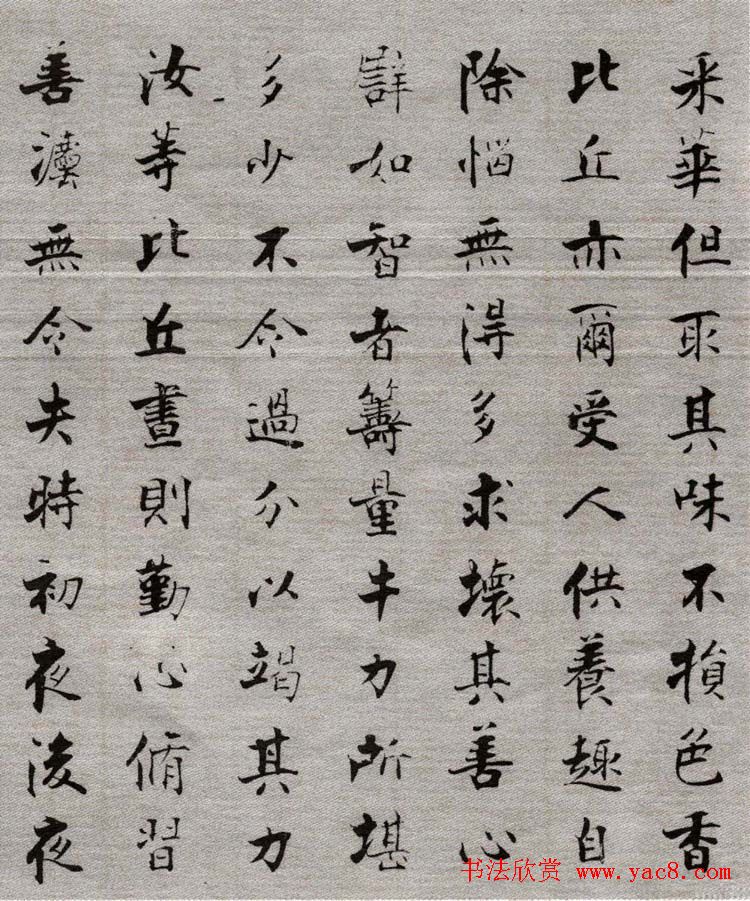 采華但取其味不損色香
比丘亦爾受人供養趣自
除惱無得多求壞其善心
譬如智者籌量牛力所堪
多少不令過分以竭其力
汝等比丘晝則勤心脩習
善法無令失時初夜後夜
书法欣赏 www.yac8.com